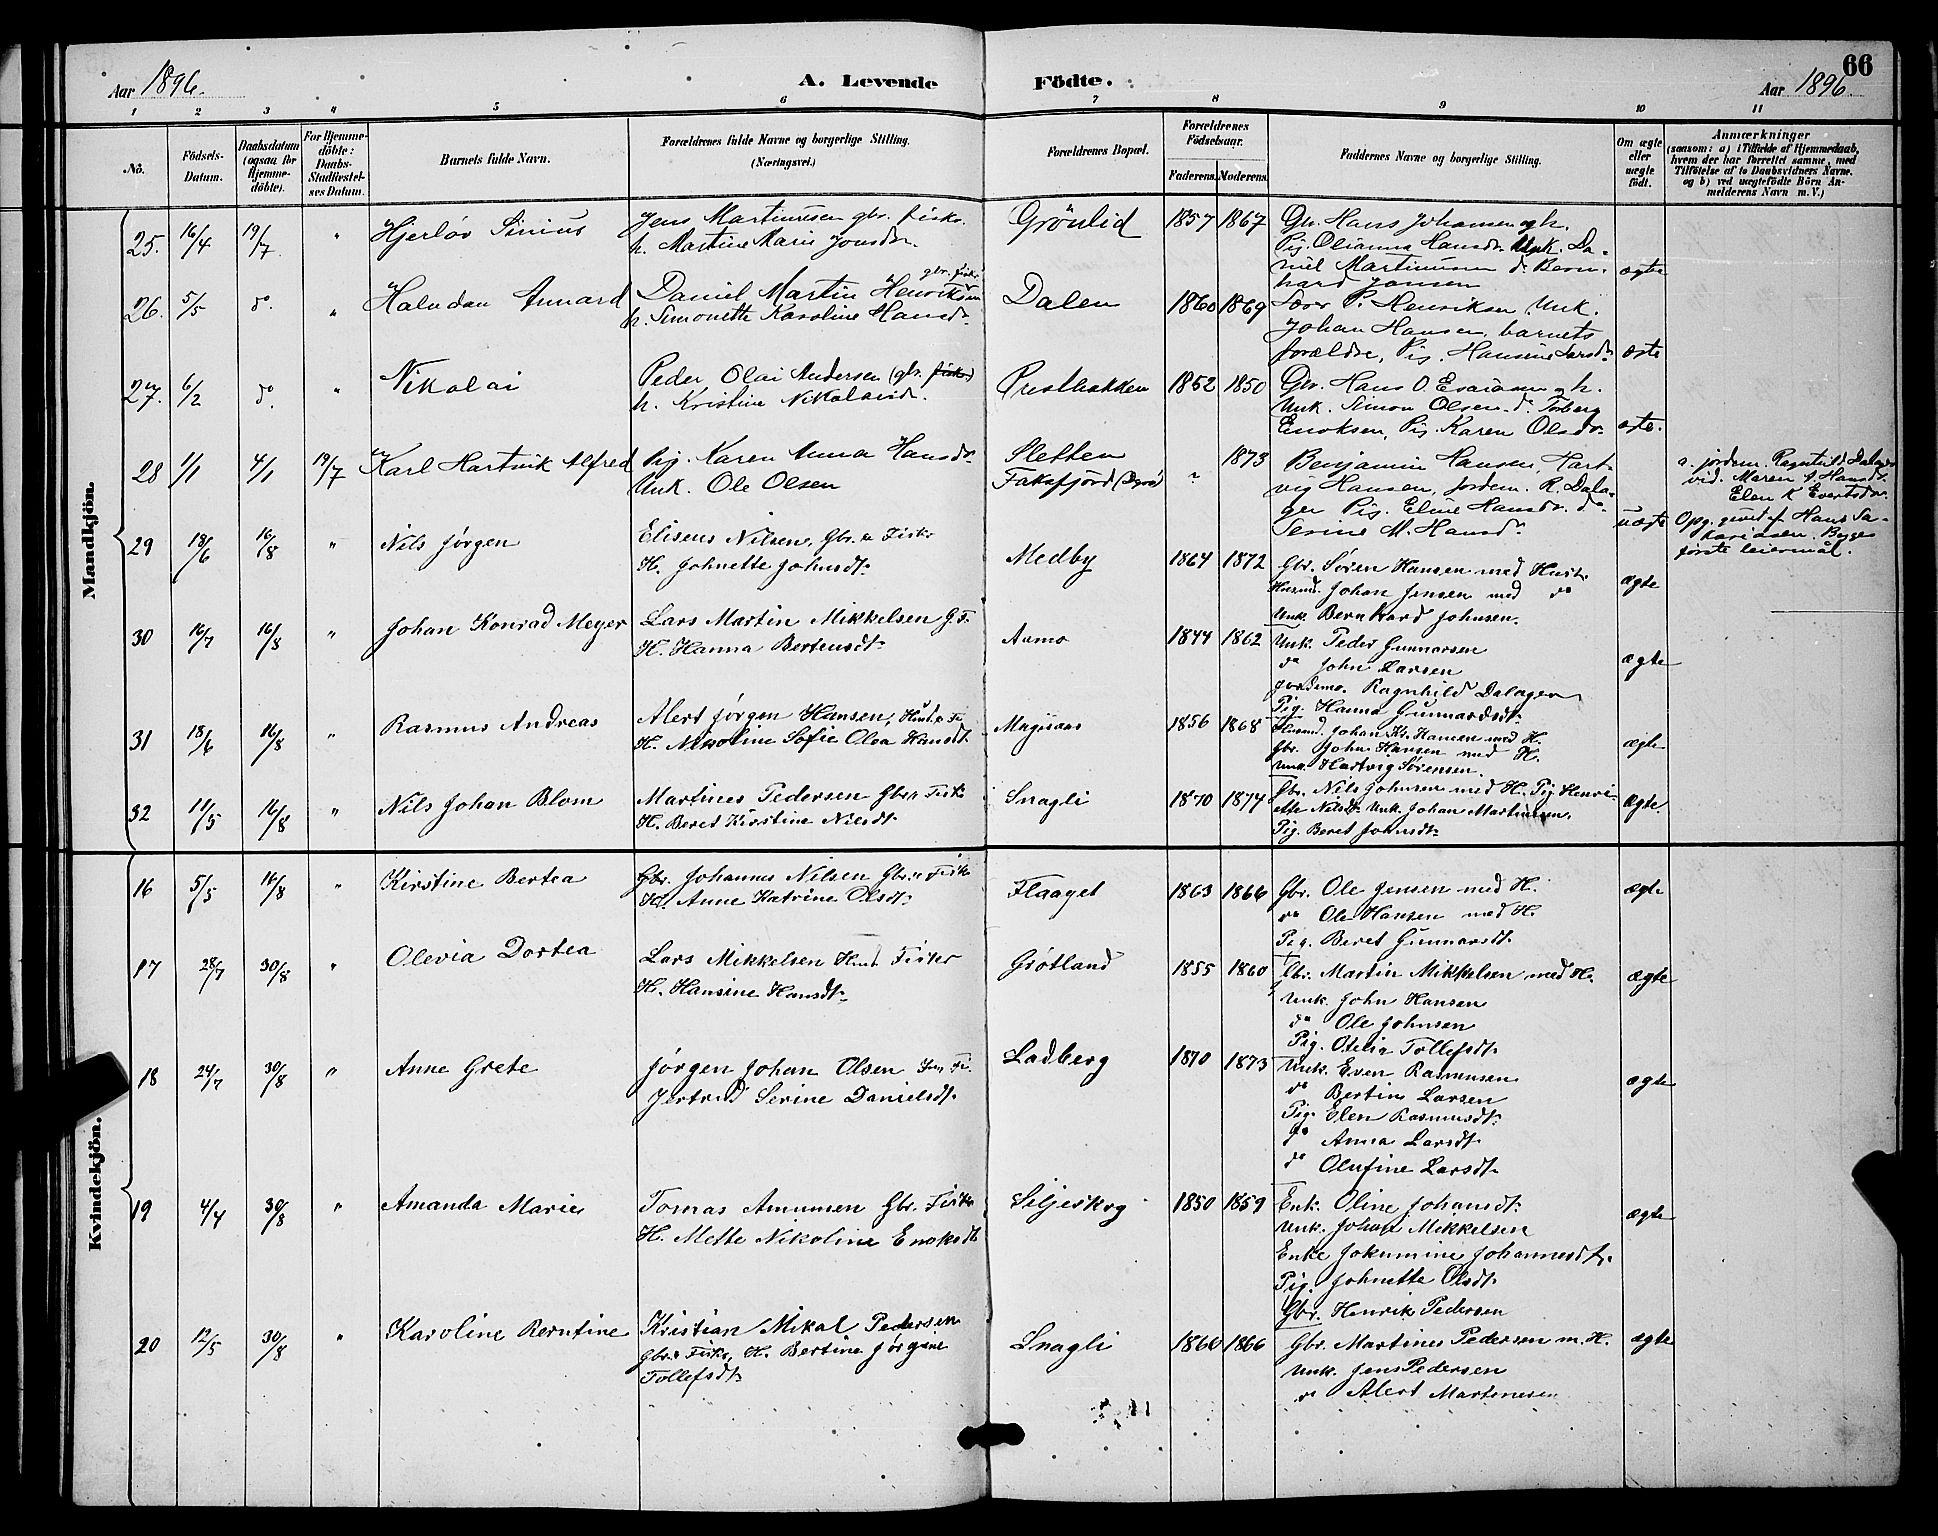 66
Aar 1896.
A. Levende Födte.
Aar 1896.
1 2 3 " 5 6 7 8 9 10 11
No.
Födsels-Datum.
Daabsdatum (ogsaa for Hjemme-döbte).
For Hjemme-döbte: Daabs-Stadfæstel-ses Datum.
Barnets fulde Navn.
Forældrenes fulde Navne og borgerlige Stilling. (Næringsvei.)
Forældrenes Bopæl.
Forældrenes Födselsaar.
Faderens. Moderens.
Faddernes Navne og borgerlige Stilling.
Om ægte eller uægte födt.
Anmærkninger
(saasom: a) i Tilfælde af Hjemmedaab, hvem der har forrettet samme, med Tilföielse af to Daabsvidners Navne, og b) ved uægtefödte Börn An-melderens Navn m. V.)
Mandkjön.
25. 16/4 19/7 " Hjerløv Sinius
Jens Martinusen gbr. fisker
h. Martine Marie Jonsdr.
Grönlid 1857 1867
Gbr. Hans Johansen og h.
Pig. Olianna Hansdr. Unk. Da-
niel Martinusen do Bern-
hard Jansen
ægte
26. 5/5 do " Halvdan Annard
Daniel Martin Henriksen gbr. fisker
h. Simonette Karoline Hansdr.
Dalen 1860 1869
Lars P. Henriksen Unk.
Johan Hansen, barnets
forældre, Pig. Hansine Larsdr.
ægte
27. 6/2 do. " Nikolai
Peder Olai Andersen (gbr. fisker)
h. Kristine Nikolaisdr.
Prestbakken 1852 1850
Gbr. Hans O Esaiasen og h.
Unk. Simon Olsen. do Torberg
Enoksen, Pig. Karen Olsdr.
ægte.
28 1/1 4/1 19/7 Karl Hartvik Alfred
Pig. Karen Anna Hansdr.
Unk. Ole Olsen
Sletten
Faksfjord (Dyrø)
" 1873
Benjamin Hansen, Hart-
vig Hansen, Jordem. R. Dala-
ger Pig. Eline Hansdr. do
Serine M. Hansdr.
uægte
a. jordem. Ragnhild Dalager
vid. Maren A. Hansdr.
Elen K Evertsdr.
Opg. givet af Hans Za-
kariasen. Begges
første leiermål.
29 18/6 16/8 " Nils Jørgen
Eliseus Nilsen, Gbr. & Fisker
H. Johnette Johnsdt.
Medby 1864 1872
Gbr. Søren Hansen med Hust.
Husmd. Johan Jensen med do
Unk. Bernhard Johnsen.
ægte
30 16/7 16/8 " Johan Konrad Meyer
Lars Martin Mikkelsen G. F.
H. Hanna Bertensdt.
Aamo 1844 1862
Unk. Peder Gunnarsen
do John Larsen
Jordemo. Ragnhild Dalager
Pig. Hanna Gunnardsdt.
ægte
31 18/6 16/8 " Rasmus Andreas
Alert Jørgen Hansen, Husm. & Fi.
H. Nikoline Sofie Olea Hansdt.
1856 1868
Husmd. Johan Kr. Hansen med H.
Gbr. John Hansen med H.
Unk. Hartvig Sørensen.
ægte
32 11/5 16/8 " Nils Johan Blom
Martines Pedersen Gbr & Fisker
H. Beret Kirstine Nilsdt.
Snagli 1870 1874
Gbr. Nils Johnsen med H. Pig. Henri-
ette Nilsdt. Unk. Johan Martinsen.
Pig. Beret Johnsdt.
Ægte.
Kvindekjön.
16 5/5 16/8 " Kirstine Bertea
Gbr. Johannes Nilsen Gbr. & Fisker
H. Anne Katrine Olsdt.
Flaaget 1863 1866
Gbr. Ole Jensen med H.
do Ole Hansen med H.
Pig. Beret Gunnarsdt.
ægte
17 28/7 30/8 " Olevia Dortea
Lars Mikkelsen Husm Fisker
H. Hansine Hansdt.
Grøtland 1855 1860
Gbr. Martin Mikkelsen med H.
Unk. John Hansen
do Ole Johnsen
Pig. Otelia Tollefsdt.
ægte
18 24/7 30/8 " Anne Grete
Jørgen Johan Olsen Fi.
Jertrud Serine Danielsdt.
Ladberg 1870 1873
Unk. Even Rasmusen
do Bertin Larsen
Pig. Elen Rasmusdt.
do Anna Larsdt.
do Olufine Larsdt.
ægte
19 4/4 30/8 " Amanda Marie
Tomas Amunsen Gbr. Fisker
H. Mette Nikoline Enoksdt.
Siljeskog 1850 1859
Enk. Oline Johansdt.
Unk. Johan Mikkelsen
Enke Jokumine Johannesdt.
Pig. Johnette Olsdt.
Gbr. Henrik Pedersen
ægte
20 12/5 30/8 " Karoline Berntine
Kristian Mikal Pedersen
Gbr. & Fisker, H. Bertine Jørgine
Tollefsdt.
Snagli 1866 1866
Gbr. Martines Pedersen m. H.
Unk. Jens Pedersen
do Alert Martinesen
ægte